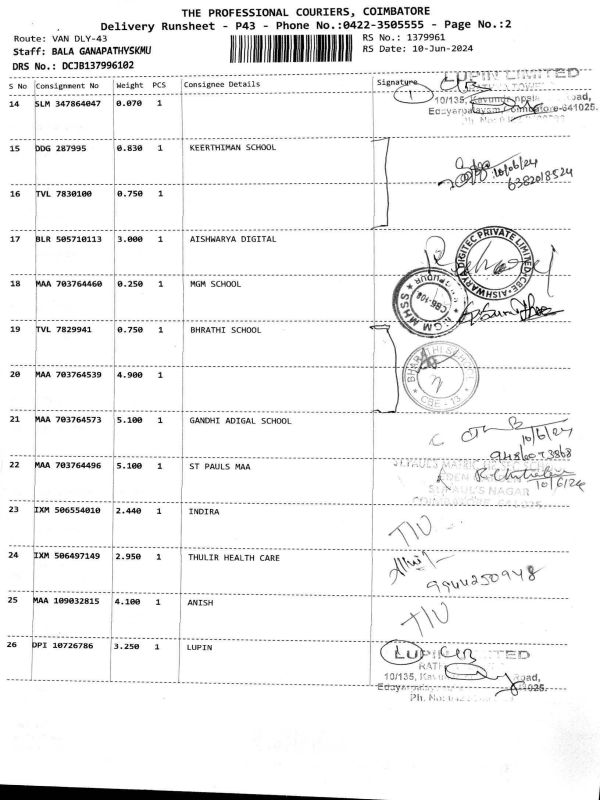 THE PROFESSIONAL COURIERS, COIMBATORE
Delivery Runsheet - P43 - Phone No.:0422-3505555 - Page No.:2
Route: VAN DLY-43
RS No.: 1379961
Staff: BALA GANAPATHYSKMU
RS Date: 10-Jun-2024
DRS No.: DCJB137996102
S No Consignment No Weight PCS Consignee Details Signature
LUPIN LIMITED
14 SLM 347864047 0.070 1
10/135,
Road,
641025.
15 DDG 287995 0.830 1 KEERTHIMAN SCHOOL
10/06/24
6382018524
16 TVL 7830100 0.750 1
17 BLR 505710113 3.000 1 AISHWARYA DIGITAL
AISHWARYA DIGITEC PRIVATE LIMITED CBE
18 MAA 703764460 0.250 1 MGM SCHOOL
19 TVL 7829941 0.750 1 BHRATHI SCHOOL
BHARATHI SCHOOL
CBE - 13
20 MAA 703764539 4.900 1
21 MAA 703764573 5.100 1 GANDHI ADIGAL SCHOOL
10/6/24
22 MAA 703764496 5.100 1 ST PAULS MAA
10/6/24
ST.PAUL'S NAGAR
23 IXM 506554010 2.440 1 INDIRA
24 IXM 506497149 2.950 1 THULIR HEALTH CARE
9944250948
25 MAA 109032815 4.100 1 ANISH
26 DPI 10726786 3.250 1 LUPIN
LUPIN LIMITED
10/135,
Road,
641025.
Ph. No: